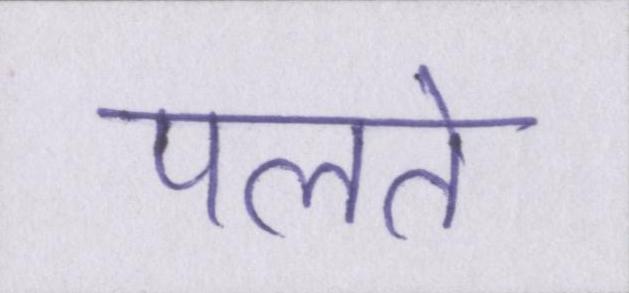 पलते